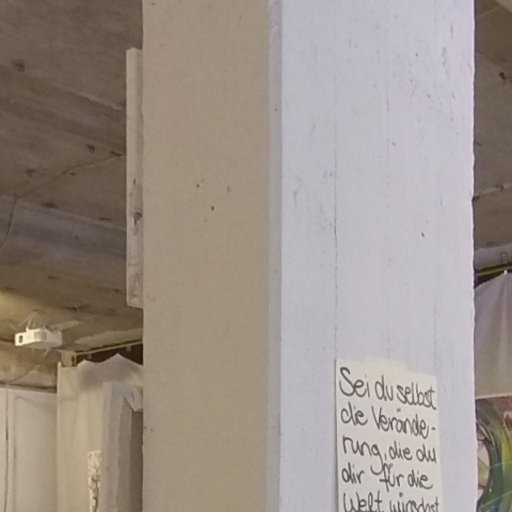 Sei du selbst
die Verände-
rung, die du
dir für die
Welt wünschst